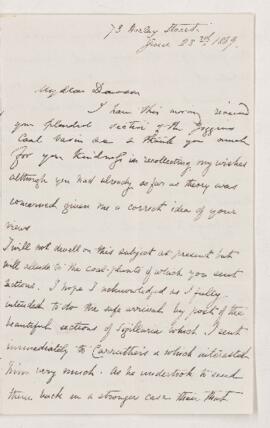 73 Harley Street.
June 23rd, 1869.
My dear Dawson
I have this morning received
your splendid section of the Joggins
Coal basin &c & thank you much
for your kindness in recollecting my wishes
although you had already so far as theory was
concerned given me a correct idea of your
views
I will not dwell on this subject at present but
will allude to the coal-plants of which you sent
sections. I hope I acknowledged as I fully
intended to do the safe arrival by post of the
beautiful sections of Sigillaria which I sent
immediately to Carruthers & which interested
him very much. As he undertook to send
them back in a stronger case than that